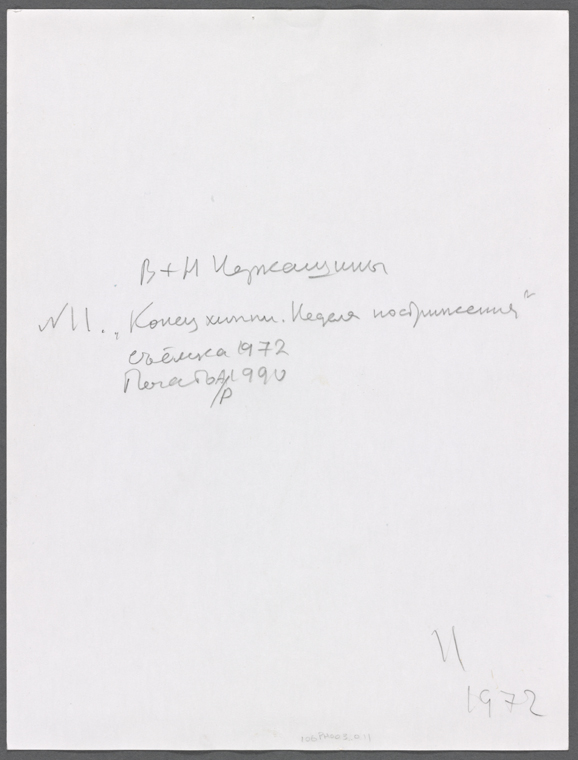 В+Н Черкашины
N 11. „Конец хиппи. Неделя пострижения“
съёмка 1972
Печать 1990
A/P
11
1972